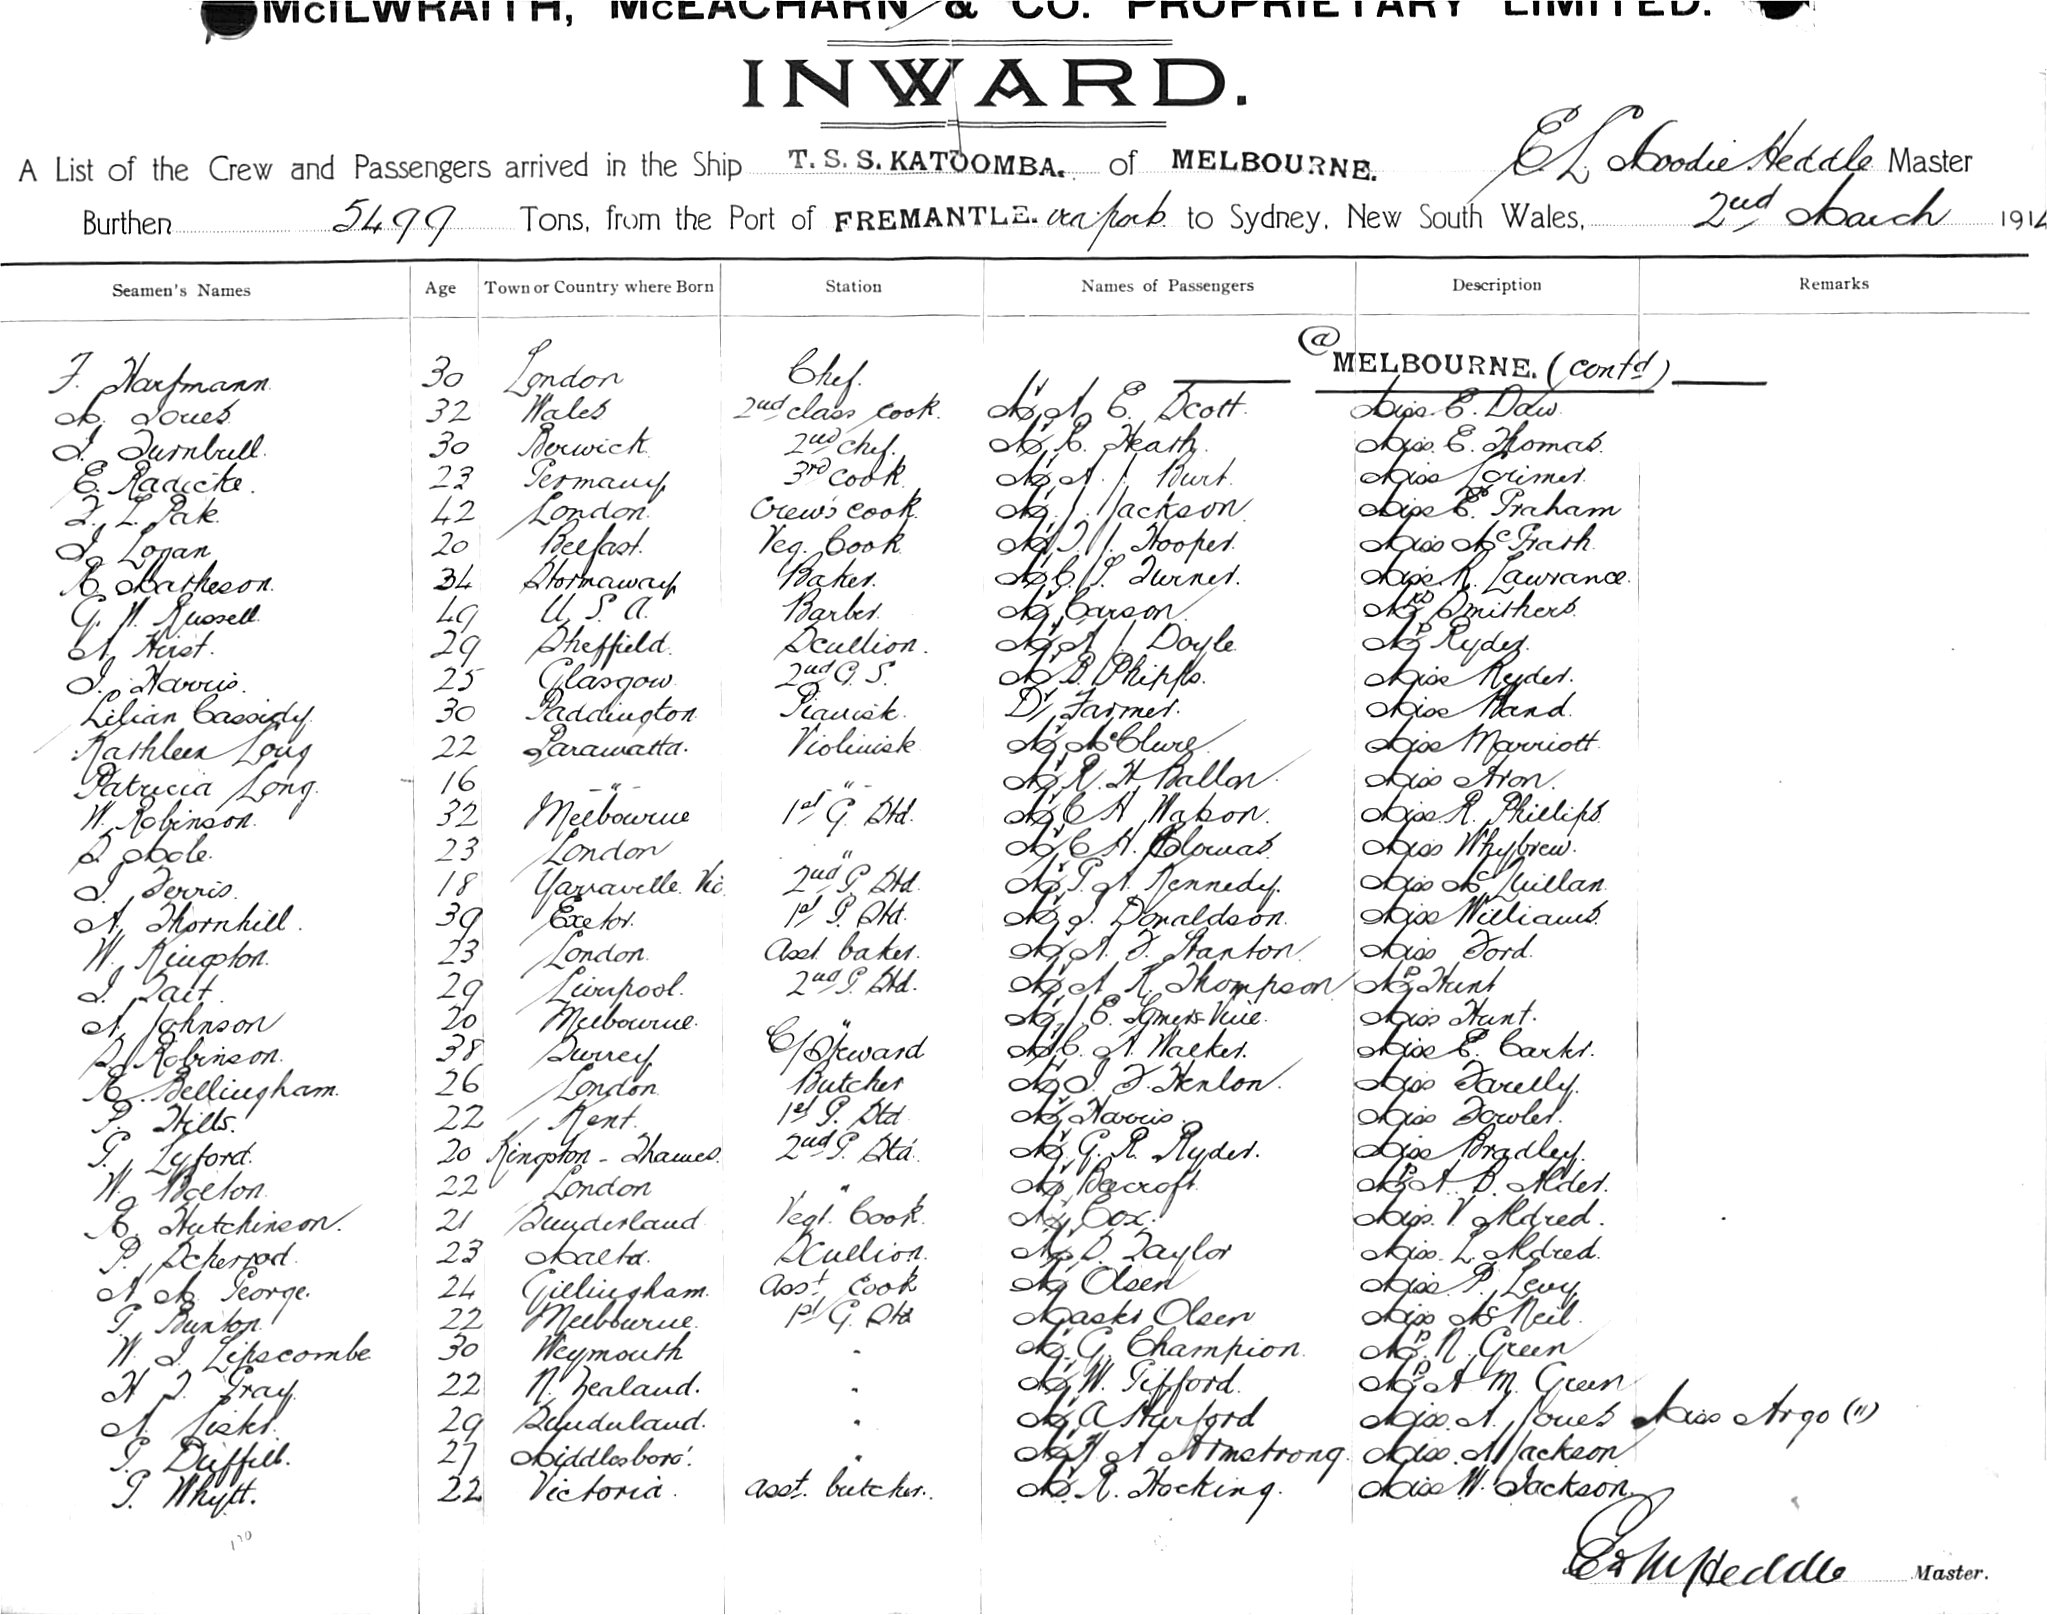 McILWRAITH, McEACHARN & CO. PROPRIETARY LIMITED.
INWARD.
A List of the Crew and Passengers arrived in the Ship T.S.S. KATOOMBA. of MELBOURNE. E L Moodie Heddle Master
Burthen 5499 Tons, from the Port of FREMANTLE. via ports to Sydney, New South Wales, 2nd March 1914
Seamen's Names Age Town or Country where Born Station Names of Passengers Description Remarks
@ MELBOURNE. (contd)
F. Hartmann 30 London Chef.
M. Jones 32 Wales 2nd class cook. Mr A. E. Scott. Miss E. Daw.
J. Turnbull. 30 Berwick 2nd chef. Mr R. Heath. Miss E. Thomas.
E. Radicke. 23 Germany 3rd cook Mr A. J. Burt. Miss Lorimer.
F. L. Pak. 42 London. Crew's cook. Mr J. Jackson Miss E. Graham
J. Logan 20 Belfast. Veg. Cook Mr T. J. Hooper. Miss McGrath.
R. Matheson. 34 Stornaway Baker. Mr C. G. Turner. Miss R. Lawrance.
G. W. Russell. 49 U. S. A. Barber. Mr Carson Mrs Smithers.
A. Hirst. 29 Sheffield. Scullion. Mr A. J. Doyle Mrs Ryder.
J. Harris. 25 Glasgow 2nd G. S. Mr B. Phipps. Miss Ryder.
Lilian Cassidy. 30 Paddington Pianist. Dr Farmer. Miss Hand.
Kathleen Long 22 Paramatta. Violinist Mr McClure Miss Marriott.
Patricia Long. 16 - " - - " - Mr R. H. Ballan. Miss Aron.
W. Robinson. 32 Melbourne 1st G. Std. Mr C H Watson. Miss R. Phillips.
S. Mole. 23 London " Mr C H. Miss Whybrew.
J. Ferris. 18 Yarraville. Vic. 2nd G. Std. Mr G. A. Kennedy. Miss McQuillan.
A. Thornhill. 39 Exeter. 1st G. Std. Mr J. Donaldson. Miss Williams.
W. Kingston. 23 London. asst. baker. Mr A. F. Stanton. Miss Ford.
J. Tait. 29 Liverpool. 2nd G. Std. Mr A R. Thompson Mrs Hunt
A. Johnson 20 Melbourne. " Mr J E. Somers-Vine. Miss Hunt.
S. Robinson. 38 Surrey C/Steward Mr C. A. Walker. Miss E. Carter.
R. Bellingham. 26 London. Butcher Mr J. F. Henlon. Miss Farelly.
P. Hills. 22 Kent. 1st G. Std Mr Harris. Miss Fowler.
G. Lyford. 20 Kingston - Thames. 2nd G. Std. Mr G. R. Ryder. Miss Bradley.
W. Bolton 22 London " Mr Becroft. Mrs A. B. Alder.
R. Hutchinson. 21 Sunderland Vegt. Cook. Mr Cox. Miss. V. Aldred.
P. 23 Malta. Scullion. Mr D. Taylor Miss. L. Aldred.
A. M. George. 24 Gillingham. asst. cook Mr Olsen Miss. P. Levy
G. Bunton. 22 Melbourne. 1st G. Std Master Olsen Miss McNeil.
W. J. Lipscombe 30 Weymouth " Mr G. Champion. Mrs. N. Green
H J. Gray. 22 N. Zealand. " Mr W. Gifford. Mrs A M. Green
A. Lister. 29 Sunderland. " Mr A Sturford Miss. A. Jones Miss Argo (11)
G. Duffill. 27 Middlesboro'. " Mr H A Armstrong. Miss. A Jackson
G. Whytt. 22 Victoria. asst. butcher. Mr. R. Hocking. Miss W. Jackson.
Heddle Master.